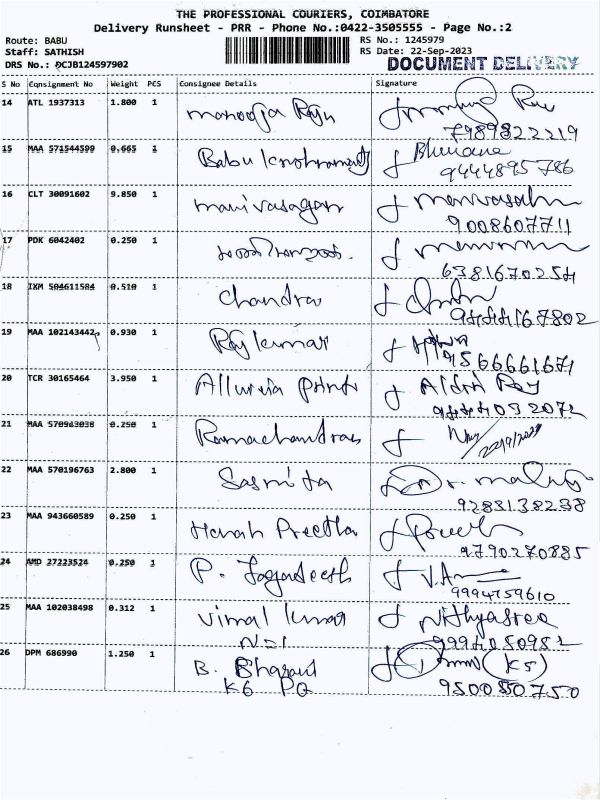 THE PROFESSIONAL COURIERS, COIMBATORE
Delivery Runsheet - PRR - Phone No.:0422-3505555 - Page No.:2
Route: BABU RS No.: 1245979
Staff: SATHISH RS Date: 22-Sep-2023
DRS No.: DCJB124597902 DOCUMENT DELIVERY
S No Consignment No Weight PCS Consignee Details Signature
14 ATL 1937313 1.800 1 manooja Raju
7989822219
15 MAA 571544599 0.665 1 Babu Bhuvana
9444895786
16 CLT 30091602 9.850 1 manivasagan
9008607711
17 PDK 6042402 0.250 1
6381670254
18 IXM 504611584 0.510 1 Chandra
9444167802
19 MAA 102143442 0.930 1 Rajkumar
9566661671
20 TCR 30165464 3.950 1 Alluvia prints Aldrin Ray
9444032072
21 MAA 570943038 0.250 1 Ramachandran
22/9/2023
22 MAA 570196763 2.800 1 Sasmita
9283138238
23 MAA 943660589 0.250 1 Harsh Preetha
9790270885
24 AMD 27223524 0.250 1 P. Jagadeesh
9994759610
25 MAA 102038498 0.312 1 Vimal kumar Nithyasree
9994050982
26 DPM 686990 1.250 1 B. Bharani (KS)
K6 PQ 9500850750